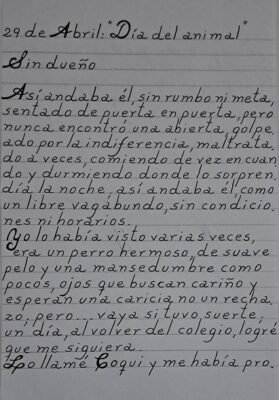 29 de Abril: "Día del animal"
Sin dueño
Así andaba él, sin rumbo ni meta,
sentado de puerta en puerta, pero
nunca encontró una abierta, golpe_
ado por la indiferencia, maltrata_
do a veces, comiendo de vez en cuan_
do y durmiendo donde lo sorpren_
día la noche, así andaba él, como
un libre vagabundo, sin condicio_
nes ni horarios.
Yo lo había visto varias veces,
era un perro hermoso, de suave
pelo y una mansedumbre como
pocos, ojos que buscan cariño y
esperan una caricia no un recha_
zo, pero... vaya si tuvo, suerte,
un día, al volver del colegio, logré
que me siguiera...
Lo llamé Coqui y me había pro_